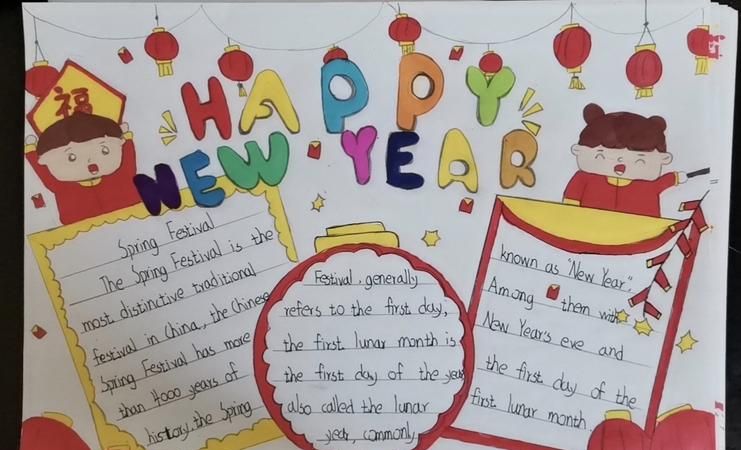 HAPPY
NEW YEAR
福
Spring Festival
The Spring Festival is the
most distinctive traditional
festival in China, the Chinese
Spring Festival has more
than 4000 years of
history.the Spring
Festival, generally
refers to the first day,
the first lunar month is
the first day of the year
also called the lunar
year, commonly
known as "New Year".
Among them with
New Year's eve and
the first day of the
first lunar month.